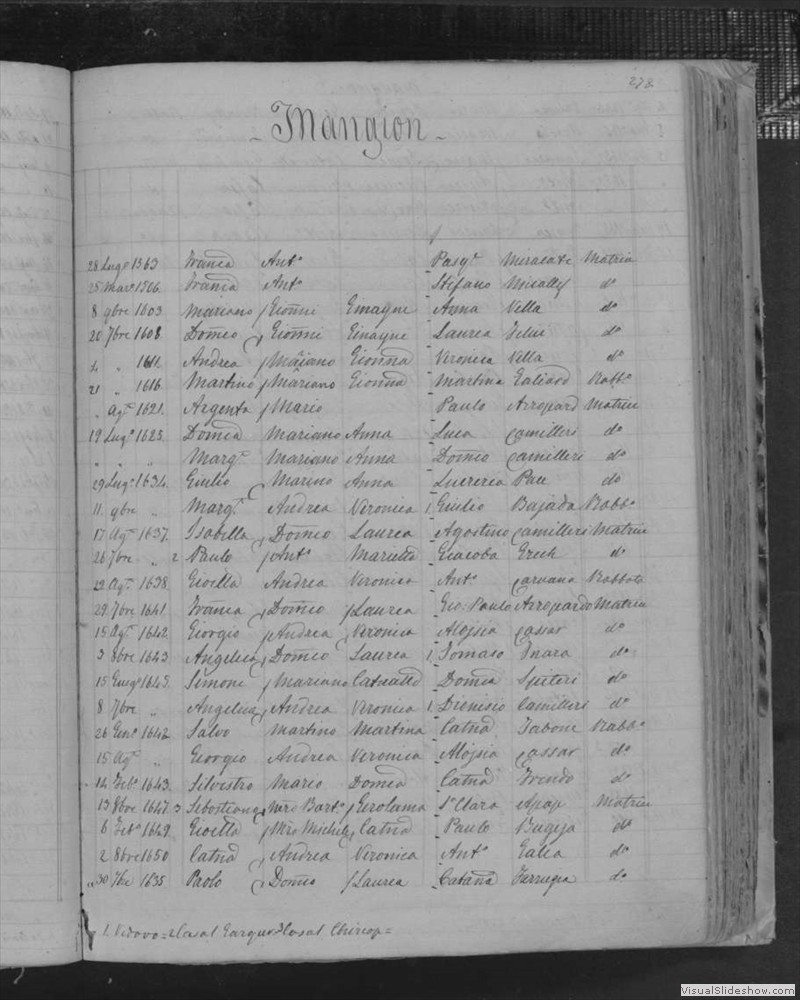 278
- Mangion -
28 Lug° 1563 Franca Ant° Pasq° Muscate Matria
25 Mar° 1566 Franca Ant° Stefano Misally d°
8 9bre 1603 Mariano Gionni Emagne Anna Vella d°
20 7bre 1608 Domco Gionni Gmayne Laurea Felu d°
4 " 1611 Andrea Mariano Gionna Veronica Vella d°
21 " 1616 Martino Mariano Gionna Martina Galiard Rabb°
" Ag° 1621 Argenta Mario Paulo Arropard Matria
19 Lug° 1625 Domca Mariano Anna Luca Camilleri d°
" " " Marg° Mariano Anna Domco Camilleri d°
29 Lug° 1634 Giulio Marino Anna Lucrezia Pace do
11 9bre " Marg° Andrea Veronica 1 Giulio Bajada Rabb°
17 Ag° 1637 Isabella Domco Laurea Agostino Camilleri Matria
26 7bre " 2 Paulo Ant° Marietta Giacoba Grech d°
22 Ag° 1638 Gioella Andrea Veronica Ant° Caruana Rabbato
29 7bre 1641 Franca Domco Laurea Gio: Paulo Arropardo Matria
15 Ag° 1642 Giorgio Andrea Veronica Alojsia Cassar d°
3 8bre 1643 Angelica Domco Laurea 1 Tomaso Inara d°
15 Giug° 1645 Simone Mariano Catnalla Domca Spiteri d°
8 7bre " Angelica Andrea Veronica 1 Dionisio Camilleri d°
26 Gen° 1642 Salvo Martino Martina Catna Tabone Rabb°
15 Ag° " Giorgio Andrea Veronica Alojsia Cassar d°
14 Feb° 1643 Silvestro Mario Domca Catna Frendo d°
13 8bre 1647 3 Sebostiano Mro Bart° Gerolama Sr Clara Apap Matria
6 Feb° 1649 Gioella Mro Michele Catna Paulo Bugeja d°
2 8bre 1650 Catna Andrea Veronica Ant° Galea d°
30 7bre 1635 Paolo Domco Laurea Catana Farrugia d°
1. Vedovo = 2 Casal Gargur = 3 Casal Chircop =
VisualSlideshow.com